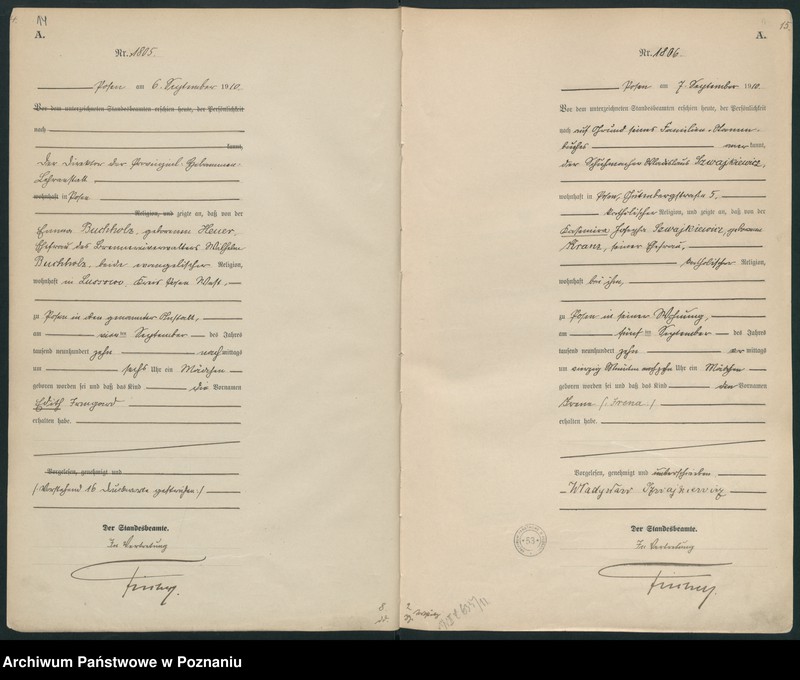 A.
Nr. 1805.
Posen am 6. September 1910.
Vor dem unterzeichneten Standesbeamten erschien heute, der Persönlichkeit
nach
kannt,
Der Direktor der Provinzial-Hebammen-
Lehranstalt
wohnhaft in Posen
Religion, und zeigte an, daß von der
Emma Buchholz, geborenen Heuer,
Ehefrau des Brennereiverwalters Wilhelm
Buchholz, beide evangelischer Religion,
wohnhaft in Lussowo, Kreis Posen West,
zu Posen in der genannten Anstalt,
am vier ten September des Jahres
tausend neunhundert zehn nachmittags
um sechs Uhr ein Mädchen
geboren worden sei und daß das Kind die Vornamen
Edith Irmgard
erhalten habe.
Vorgelesen, genehmigt und
(: Vorstehend 16 Druckworte gestrichen :)
Der Standesbeamte.
In Vertretung
A.
15.
Nr. 1806.
Posen am 7. September 1910.
Vor dem unterzeichneten Standesbeamten erschien heute, der Persönlichkeit
nach auf Grund seines Familien-Stamm-
buches kannt,
der Schuhmacher Wladislaus Szwajkiewicz,
wohnhaft in Posen, Gutenbergstraße 5,
katholischer Religion, und zeigte an, daß von der
Kasimira Josepha Szwajkiewicz, geborenen
Kranz, seiner Ehefrau,
katholischer Religion,
wohnhaft bei ihm,
zu Posen in seiner Wohnung,
am fünf ten September des Jahres
tausend neunhundert zehn vormittags
um Uhr ein Mädchen
geboren worden sei und daß das Kind den Vornamen
Irene (: Irena :)
erhalten habe.
Vorgelesen, genehmigt und unterschrieben
Władysław Szwajkiewicz
Der Standesbeamte.
In Vertretung
53
Archiwum Państwowe w Poznaniu